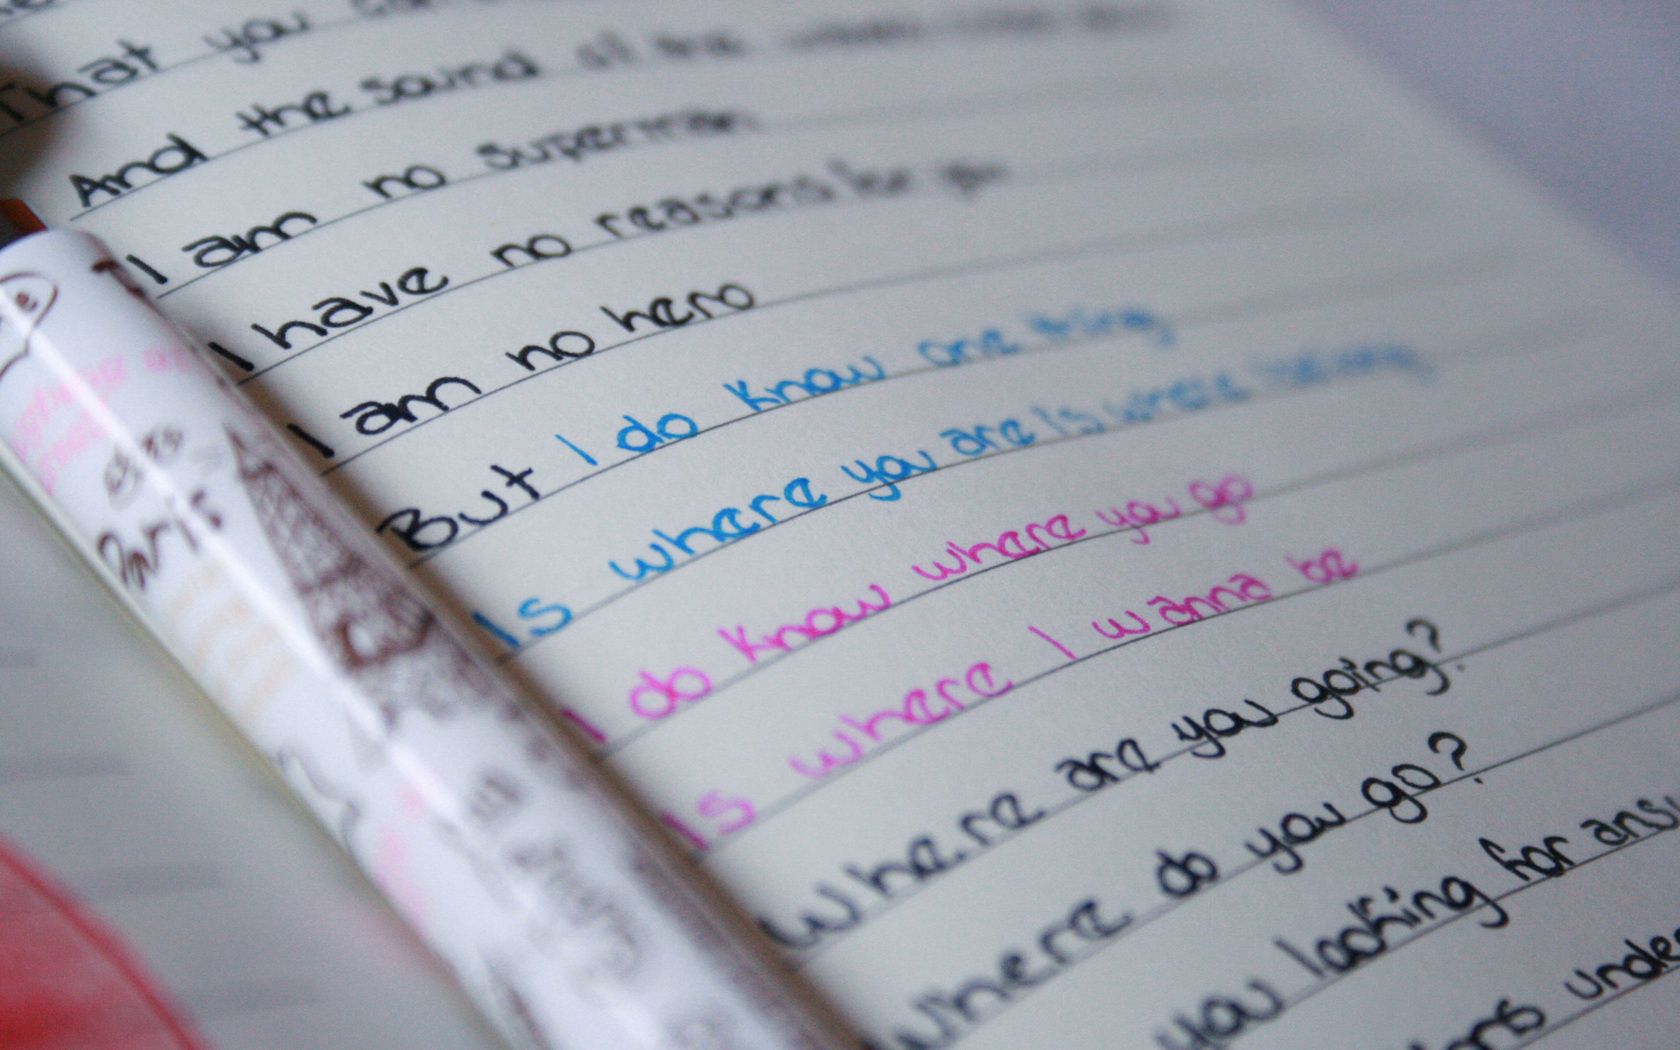 That you
And the sound of the
I am no superman
I have no reasons for you
I am no hero
But I do know one thing
Is where you are is where belong
I do know where you go
Is where I wanna be
Where are you going?
Where do you go?
you looking for ans
under
Paris